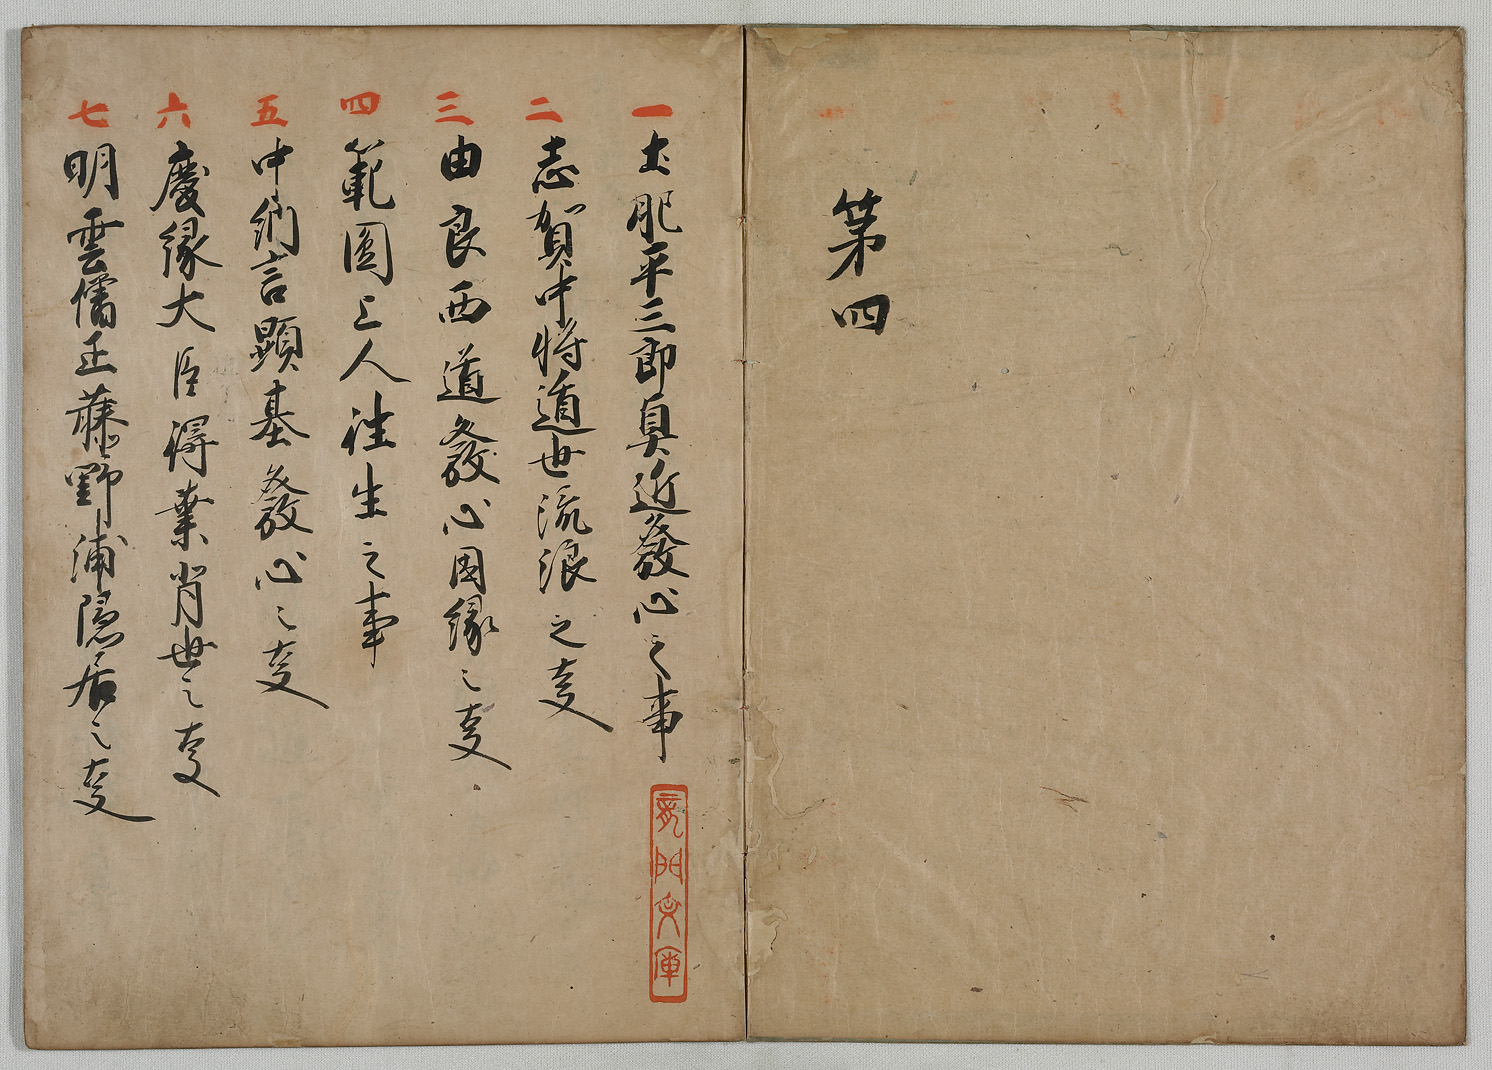 第四
一 土肥平三郎真近發心之事
二 志賀中将遁世流浪之事
三 由良西道發心因縁之事
四 範圓上人往生之事
五 中納言顕基發心之事
六 慶縁大臣得業背世之事
七 明雲僧正藤野浦隠居之事
龍門文庫